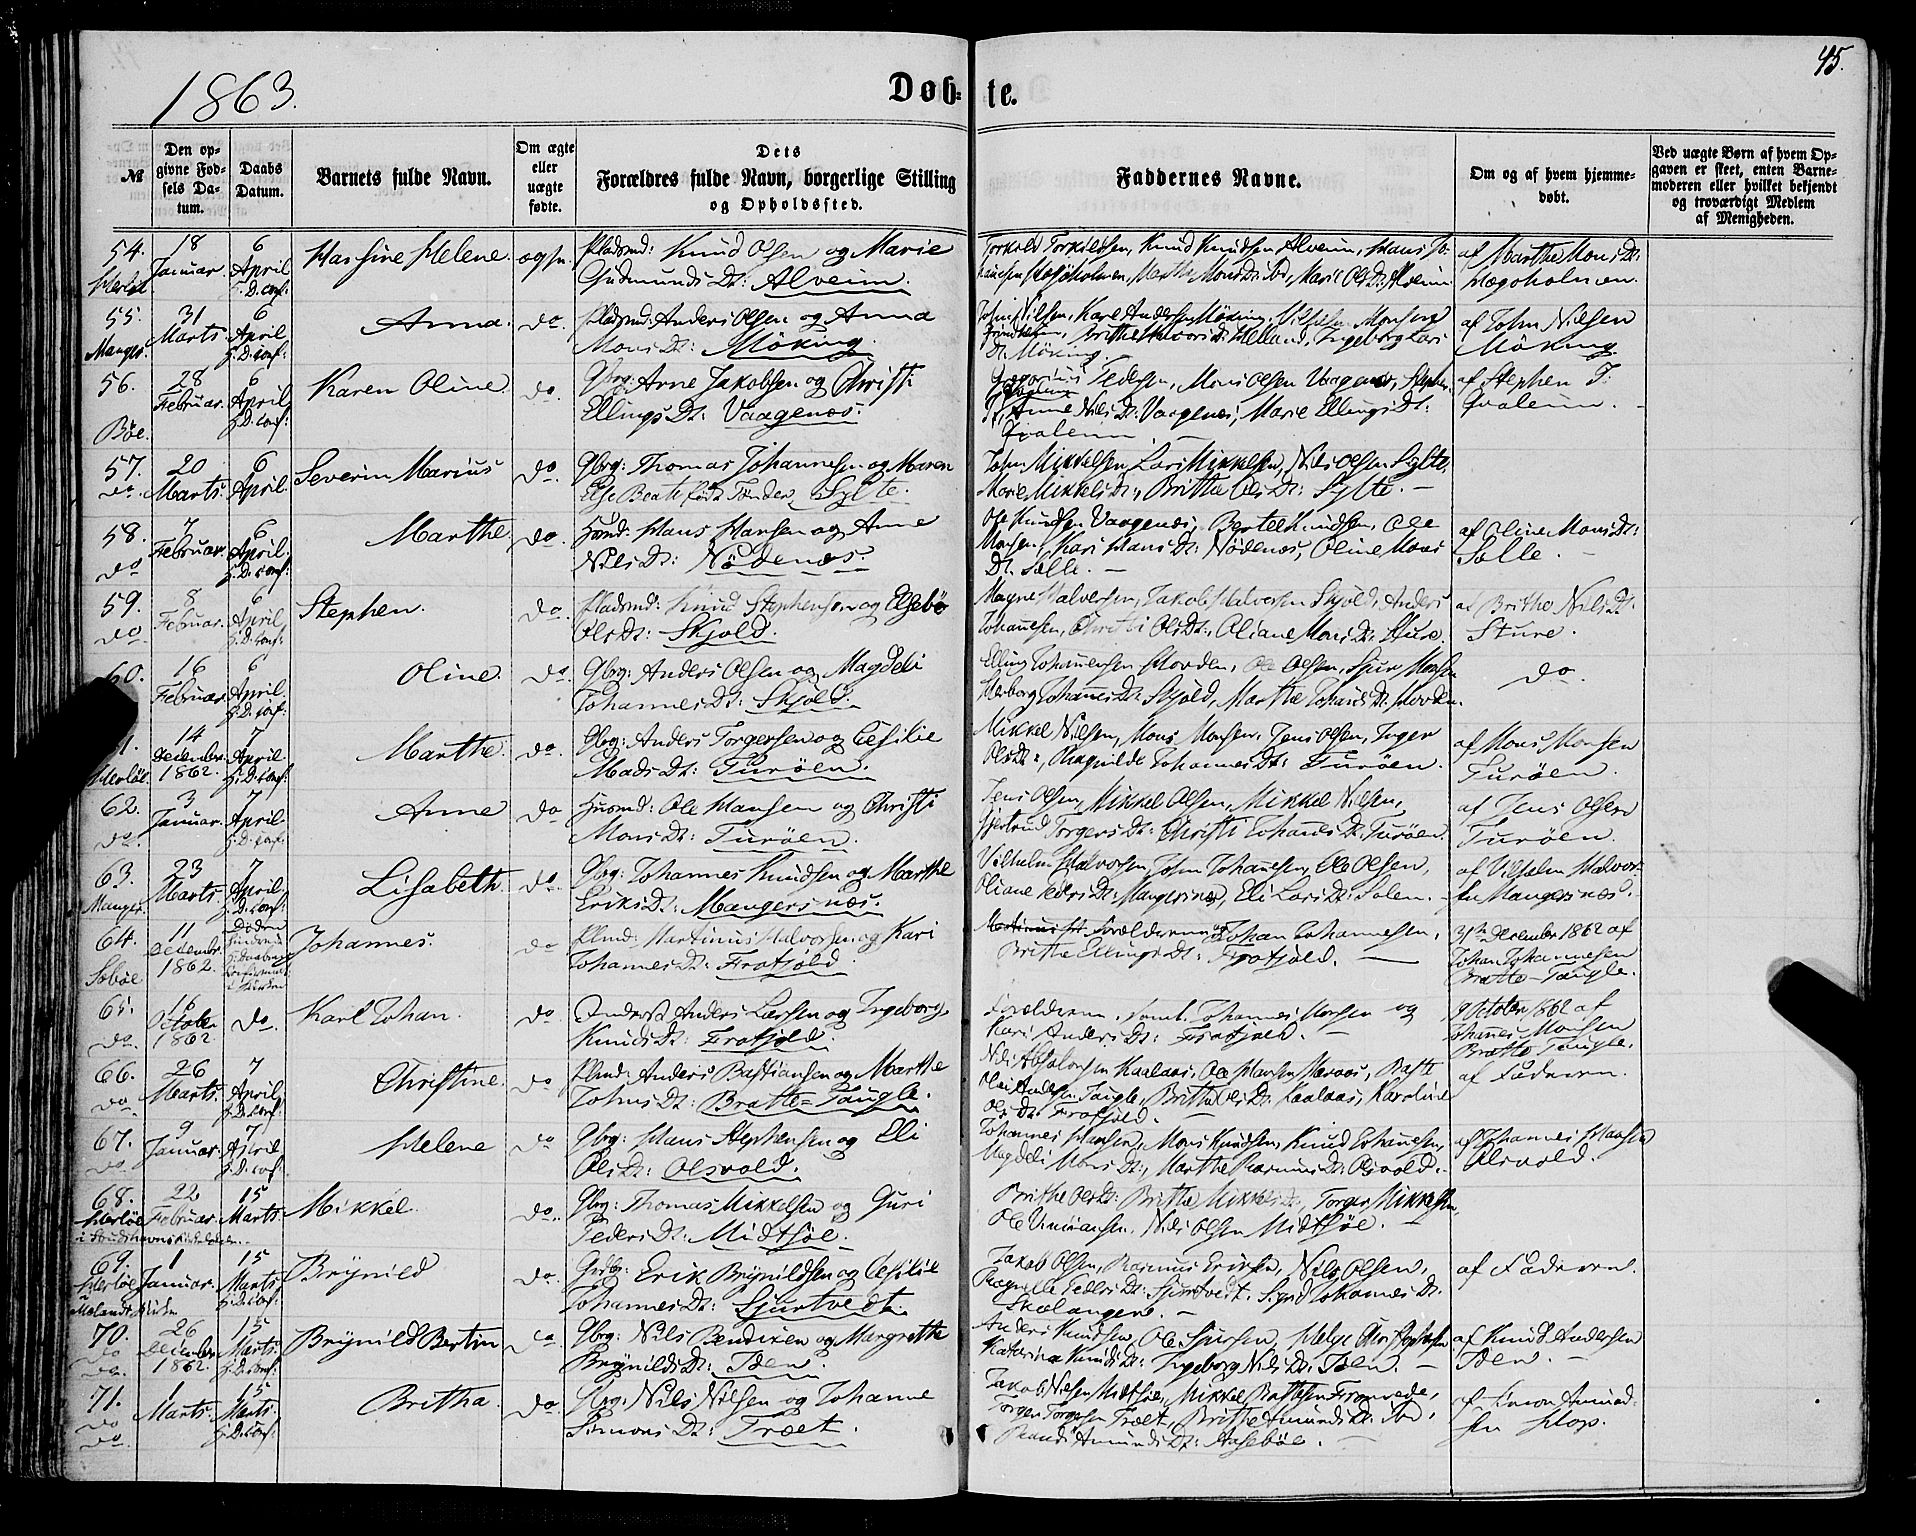 1863.
Døb-
te.
45.
№
Den op-
givne Fød-
sels Da-
tum.
Daabs
Datum.
Barnets fulde Navn.
Om ægte
eller
uægte
fødte.
Dets
Forældres fulde Navn, borgerlige Stilling
og Opholdssted.
Faddernes Navne.
Om og af hvem hjemme-
døbt.
Ved uægte Børn af hvem Op-
gaven er skeet, enten Barne-
moderen eller hvilket bekjendt
og troværdigt Medlem
af Menigheden.
54.
18
Januar.
6
April
Helene.
Pladsmd: Knud Olsen og Marie
Gudmunds Dt: Alveim.
Torkild Torkildsen, Knud Knudsen Alveim, Hans Jo-
af Marthe Mons Dt:
55.
Manger.
31
Marts.
6
April
Anna.
do.
Pladsmd: Anders Olsen og Anna
Mons Dt: Möking.
John Nilsen, Karl Andersen Möking,
Dt. Möking.
af John Nilsen
Möking.
56.
Böe.
28
Februar.
6
April
Karen Oline.
do.
Gbrg: Arne Jakobsen og Christi
Ellings Dt: Vaagenæs.
Pedersen, Mons Olsen Vaagenæs,
Anne Nils Dt: Vaagenæs, Marie Ellings Dt:
af Stephen
57.
do.
20
Marts.
6
April.
Severin Marius
do.
Gbrg: Thomas Johannesen og Maren
Else Beate født Tønder, Sylte.
John Mikkelsen, Lars Mikkelsen, Nils Olsen Sylte
Marie Mikkels Dt:, Britha Ols Dt: Sylte. —
58.
do
7
Februar.
6
April.
Marthe.
do.
Husmd: Hans Hansen og Ane
Nils Dt: Nödenæs.
Ole Knudsen Vaagenæs, Bertel Knudsen, Ole
Monsen, Kari Hans Dt: Nödenæs, Oline Mons
Dt. Sælle. —
af Oline Mons Dt:
59.
do
8
Februar.
6
April
Stephen.
do.
Pladsmd: Knud Stephensen og Elsebø
Ols Dt: Skjold.
Magne Halvorsen, Jakob Halvorsen Skjold, Anders
Johannesen, Christi Ols Dt:, Oliane Mons Dt: Sture.
af Brithe Nils Dt:
Sture.
60.
16
Februar.
6
April.
Oline.
do.
Gbrg: Anders Olsen og Magdeli
Johannes Dt: Skjold.
Elling Johannesen Hovden, Ole Olsen, Sjur Monsen
Herborg Johannes Dt: Skjold, Marthe Johannes Dt: Hovden.
do.
14
December
1862.
7
April
Marthe.
do.
Gbrg: Anders Torgersen og Cesilie
Mads Dt: Turöen.
Mikkel Nilsen, Mons Monsen, Jens Olsen, Inger
Ols Dt:, Ragnilde Johannes Dt: Turöen.
af Mons Monsen
Turöen.
62.
do.
3
Januar.
7
April.
Anne
do
Husmd: Ole Hansen og Christi
Mons Dt: Turöen.
Jens Olsen, Mikkel Olsen, Mikkel Nilsen,
Gjertrud Torgers Dt: Christi Johannes Dt: Turöen.
af Jens Olsen
Turöen.
63.
Manger.
23
Marts.
7
April.
Lisabeth.
do.
Gbrg: Johannes Knudsen og Marthe
Eriks Dt: Mangersnæs.
Vilhelm Halvorsen, John Johannesen, Ole Olsen,
Oliane Peders Dt: Mangersnæs, Eli Lars Dt: Solem.
af Vilhelm Halvor-
sen Mangersnæs.
64.
Sæböe
11
December
1862.
Johannes.
do
Plmd: Martinus Halvorsen og Kari
Johannes Dt: Frotjold.
Forældrene og Johan Johannesen,
Brithe Ellings Dt: Frotjold. —
31te December 1862 af
Johan Johannesen
Bratte-Taugle.
65.
do.
16
October
1862.
do
Karl Johan.
do.
Anders Larsen og Ingeborg
Knuds Dt: Frotjold.
Forældrene, samt Johannes Monsen — og
Kari Anders Dt: Frotjold.
October 1862 af
Johannes Monsen
Bratte Taugle.
66.
do.
26
Marts.
7
April
Christine.
do
Plmd: Anders Bastiansen og Marthe
Johns Dt: Bratte-Taugle.
Nils Absalonsen Kaalaas, Ole Hansen
Taugle, Britha Ols Dt: Kaalaas, Karoline
Ols Dt: Frotjold.
af Faderen.
67.
do.
9
Januar.
7
April
Helene
do
Gbrg: Hans Stephensen og Eli
Ols Dt: Olsvold.
Johannes Hansen, Mons Knudsen, Knud Johannesen,
Magdeli Mons Dt:, Marthe Rasmus Dt: Olsvold.
af Johannes Hansen
Olsvold.
68.
Herlöe
22
Februar
15
Marts.
Mikkel.
do.
Gbrg: Thomas Mikkelsen og Guri
Peders Dt: Midthöe.
Brithe Ols Dt: Brithe Mikkels Dt, Torger Mikkelsen,
Nils Olsen Midthöe. —
69.
Herlöe
1
Januar.
15
Marts
Brynild
do.
Gbrg: Erik Brynildsen og Cesilie
Johannes Dt: Sjurtvedt.
Jakob Olsen, Rasmus Eriksen, Nils Olsen,
Ragnilde Peders Dt: Sjurtvedt, Sigrid Johannes Dt:
Skælangere. —
af Faderen.
70.
do
do.
26
December
1862.
15
Marts.
Brynild Bertin
do
Gbrg: Nils Bendixen og Margrethe
Brynilds Dt: Iden.
Anders Knudsen, Ole Sjursen, Helge Christophersen
Katarina Knuds Dt: Ingeborg Nils Dt: Iden. —
af Knud Andersen
Iden. —
71.
do
do.
1
Marts.
15
Marts.
Britha.
do.
Gbrg: Nils Nilsen og Johanne
Simons Dt: Træt.
Jakob Nilsen Midthöe, Mikkel
Torger Torgersen Træt, Brithe Amunds Dt: ibd,
Randi Amunds Dt: Aasebøe. —
af Simon Amund-
sen Hop.